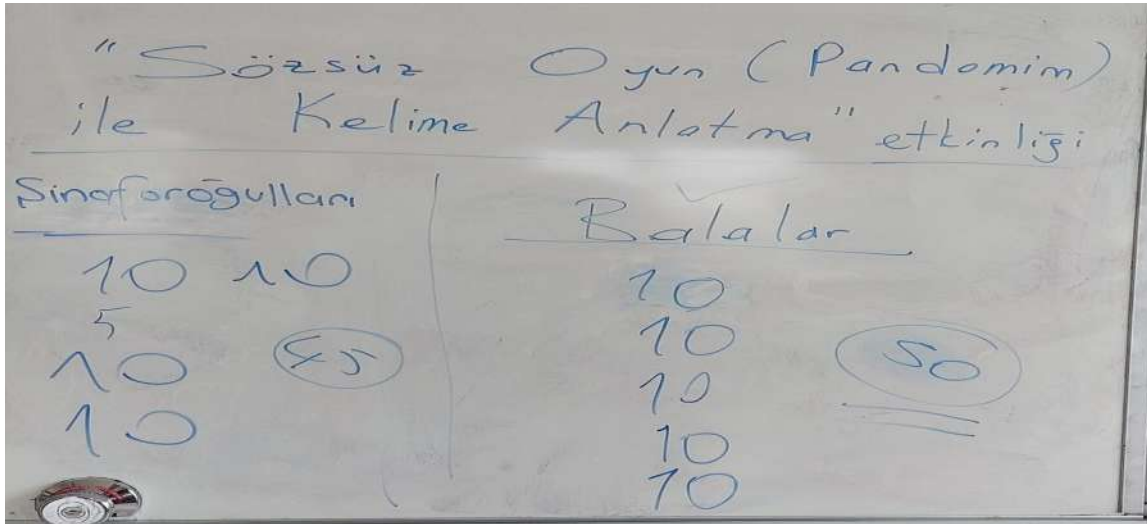 "Sözsüz Oyun (Pandomim)
ile Kelime Anlatma" etkinliği
Sinaforoğulları
10 10
5
10 45
10
Balalar
10
10
10 50
10
10